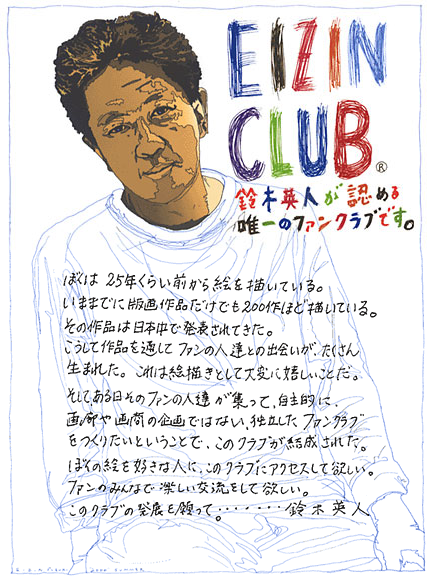 EIZIN
CLUB®
鈴木英人が認める
唯一のファンクラブです。
ぼくは 25年くらい前から絵を描いている。
いままでに版画作品だけでも200作ほど描いている。
その作品は日本中で発表されてきた。
こうして作品を通してファンの人達との出会いが、たくさん
生まれた。これは絵描きとして大変に嬉しいことだ。
そして、ある日そのファンの人達が集って、自主的に、
画廊や画商の企画ではない、独立したファンクラブ
をつくりたいということで、このクラブが結成された。
ぼくの絵を好きな人に、このクラブにアクセスして欲しい。
ファンのみんなで楽しい交流をして欲しい。
このクラブの発展を願って。・・・・・・・鈴木英人
2000 SUMMER